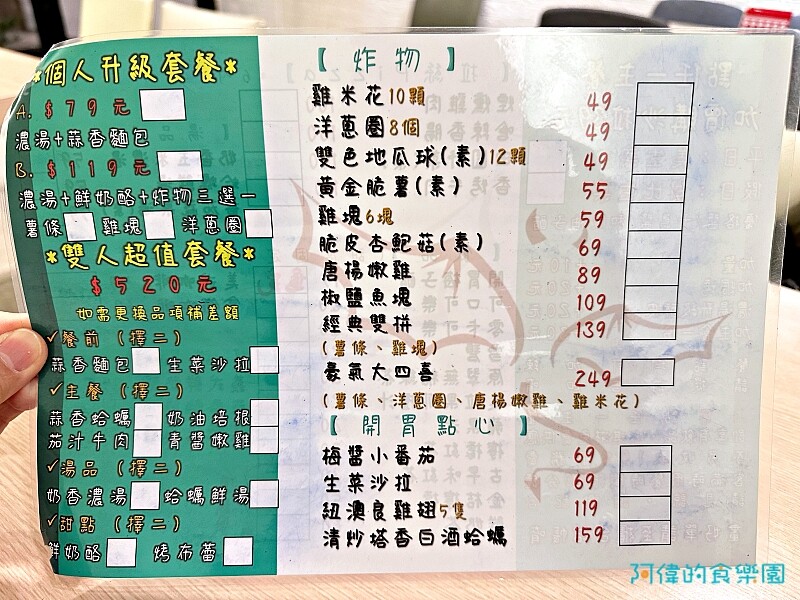 *個人升級套餐*
A. $79元
濃湯+蒜香麵包
B. $119元
濃湯+鮮奶酪+炸物三選一
薯條 雞塊 洋蔥圈
*雙人超值套餐*
$520元
如需更換品項補差額
✓餐前 (擇二)
蒜香麵包 生菜沙拉
✓主餐 (擇二)
蒜香蛤蠣 奶油培根
茄汁牛肉 青醬嫩雞
✓湯品 (擇二)
奶香濃湯 蛤蠣鮮湯
✓甜點 (擇二)
鮮奶酪 烤布蕾
【 炸物 】
雞米花10顆 49
洋蔥圈8個 49
雙色地瓜球(素)12顆 49
黃金脆薯(素) 55
雞塊6塊 59
脆皮杏鮑菇(素) 69
唐楊嫩雞 89
椒鹽魚塊 109
經典雙拼 139
(薯條、雞塊)
豪氣大四喜 249
(薯條、洋蔥圈、唐楊嫩雞、雞米花)
【 開胃點心 】
梅醬小番茄 69
生菜沙拉 69
紐澳良雞翅5隻 119
清炒塔香白酒蛤蠣 159
阿偉的食樂園